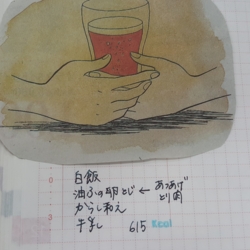 白飯
油ふの卵とじ ← あつあげ とり肉
からし和え
牛乳 615 kcal